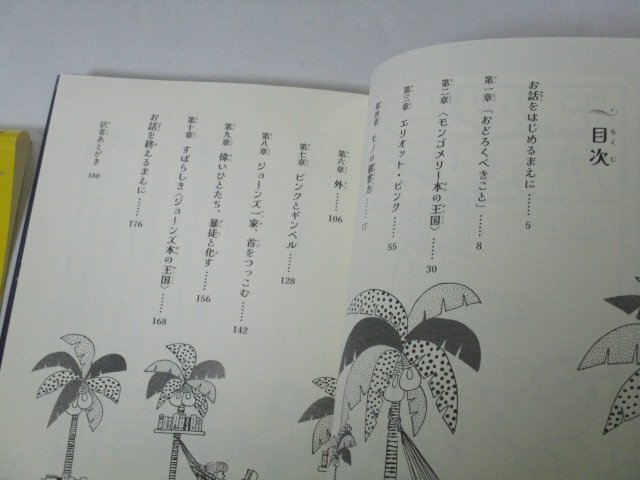 目次
お話をはじめるまえに……5
第一章 「おどろくべきこと」……8
第二章 〈モンゴメリー本の王国〉……30
第三章 エリオット・ピンク……55
第四章 モノの観察力……77
第六章 外……106
第七章 ピンクとギンベル……128
第八章 ジョーンズ一家、首をつっこむ……142
第九章 偉いひとたち、暴徒と化す……156
第十章 すばらしき〈ジョーンズ本の王国〉……168
お話を終えるまえに……176
訳者あとがき 180